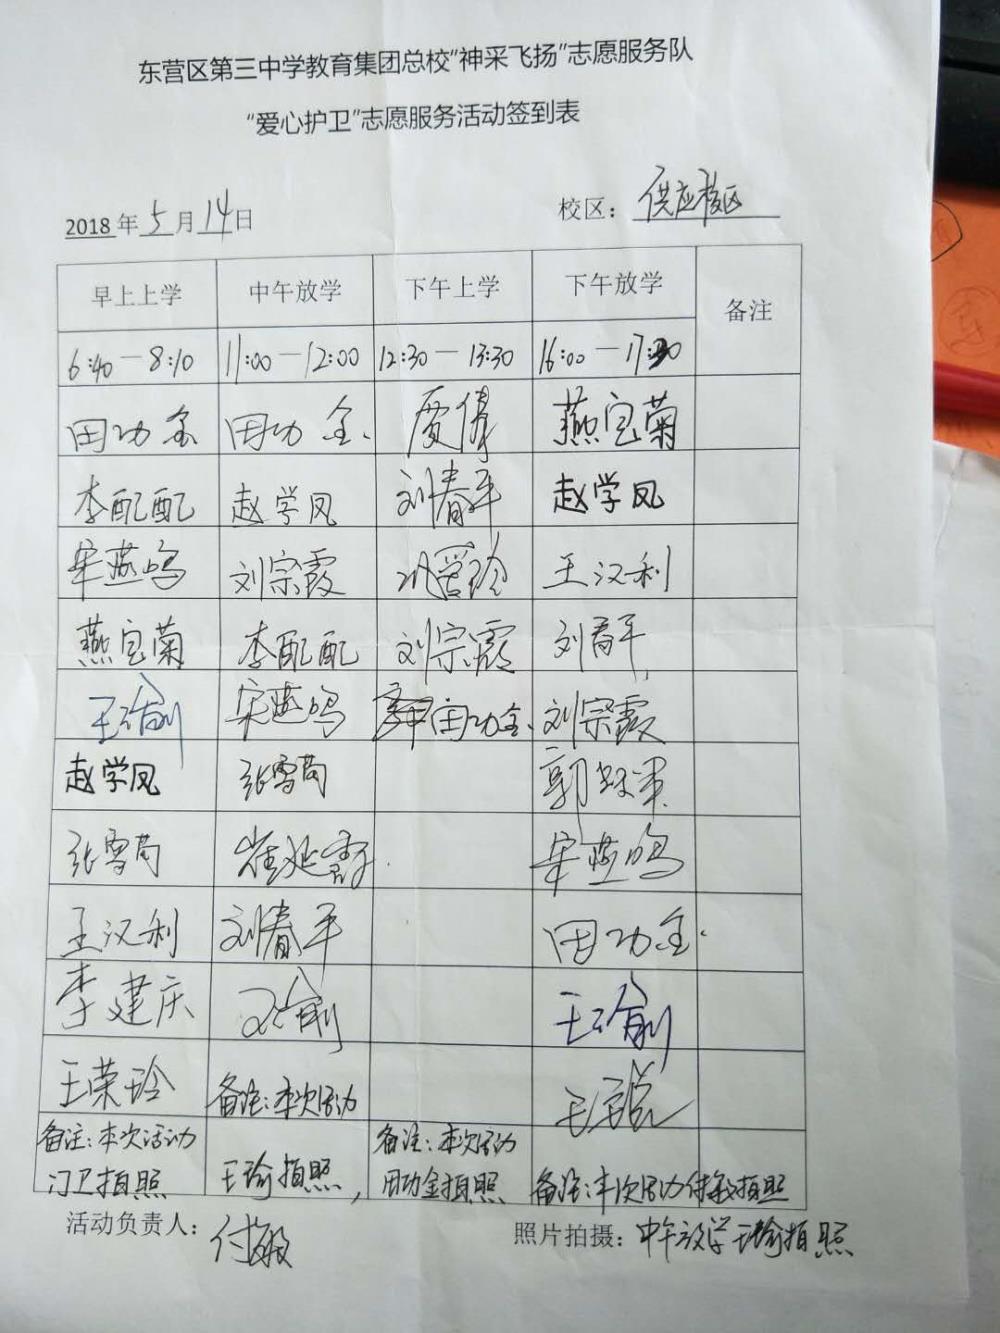 东营区第三中学教育集团总校"神采飞扬"志愿服务队
"爱心护卫"志愿服务活动签到表
2018年5月14日 校区：供应校区
早上上学 中午放学 下午上学 下午放学 备注
6:40－8:10 11:00－12:00 12:30－13:30 16:00－17:30
田功金 田功金 燕宝菊
李配配 赵学凤 刘春平 赵学凤
宋燕鸣 刘宗霞 巩爱玲 王汉利
燕宝菊 李配配 刘宗霞 刘春平
王瑜 宋燕鸣 田功金 刘宗霞
赵学凤 张雪苘 郭
张雪苘 崔延霞 宋燕鸣
王汉利 刘春平 田功金
李建庆 王瑜 王瑜
王荣玲 备注：本次活动 王
备注：本次活动 备注：本次活动
门卫拍照 王瑜拍照， 田功金拍照 备注：本次活动付敏拍照
活动负责人：付敏 照片拍摄：中午放学王瑜拍照